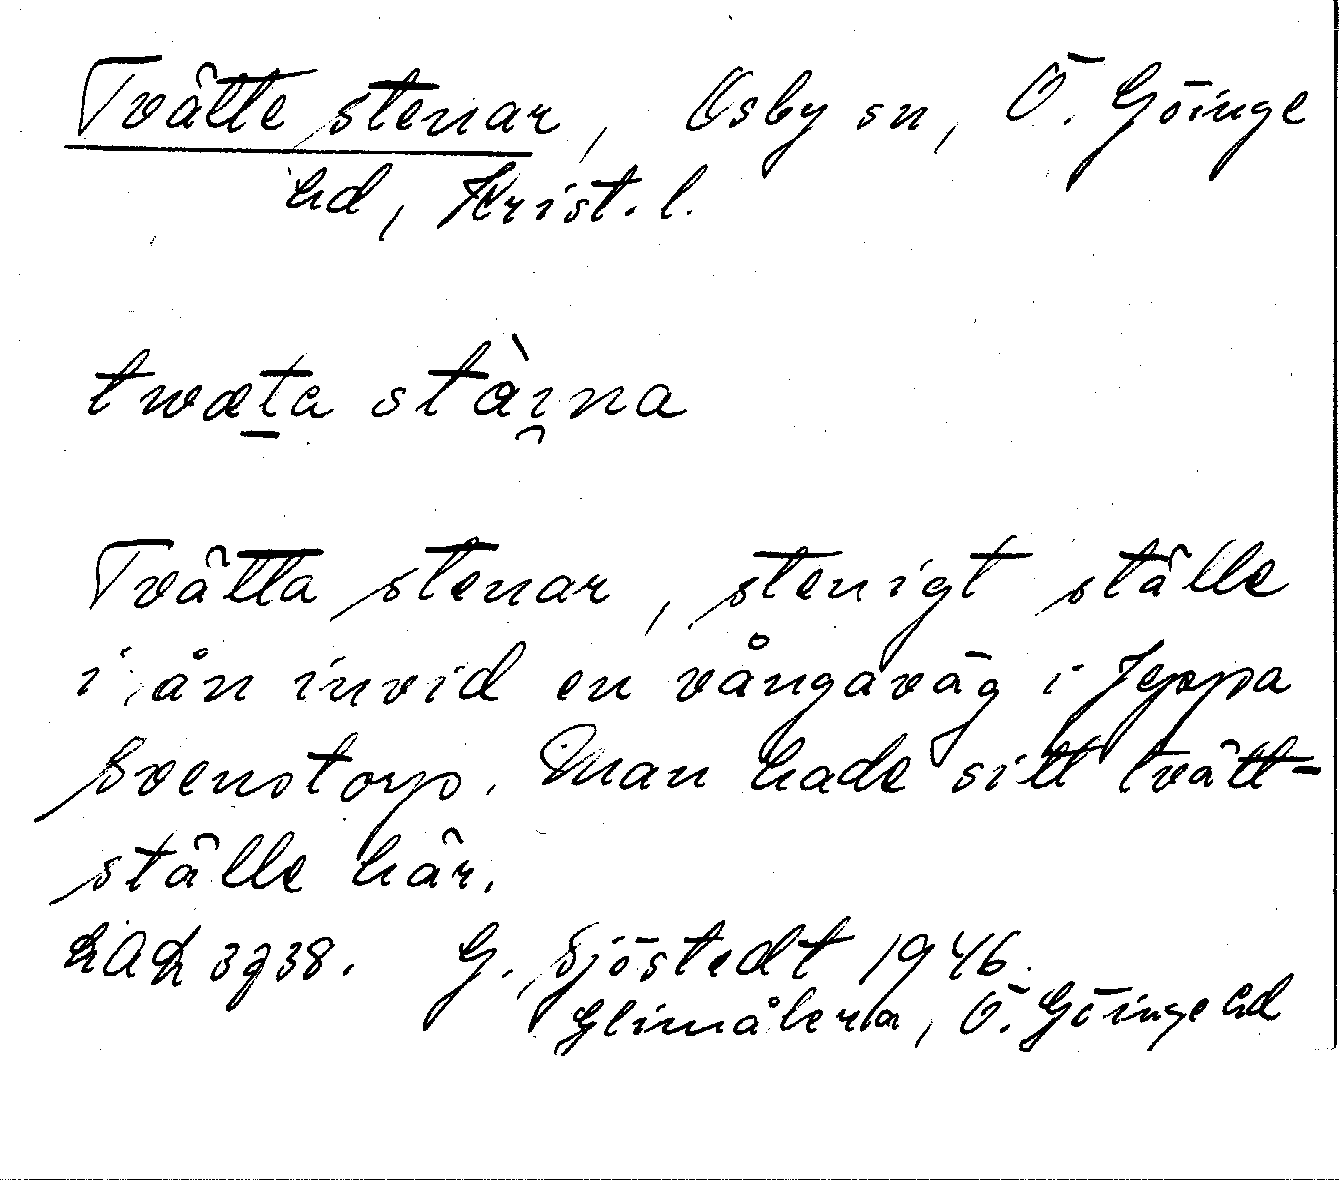 Tvätte stenar, Osby sn, Ö. Göinge
hd, Krist. l.
twæta stàina
Tvätta stenar, stenigt ställe
i ån invid en vångaväg i Jeppa
Svenstorp. Man hade sitt tvätt-
ställe här.
3738. G. Sjöstedt 1946.
Glimåkra, Ö. Göinge hd